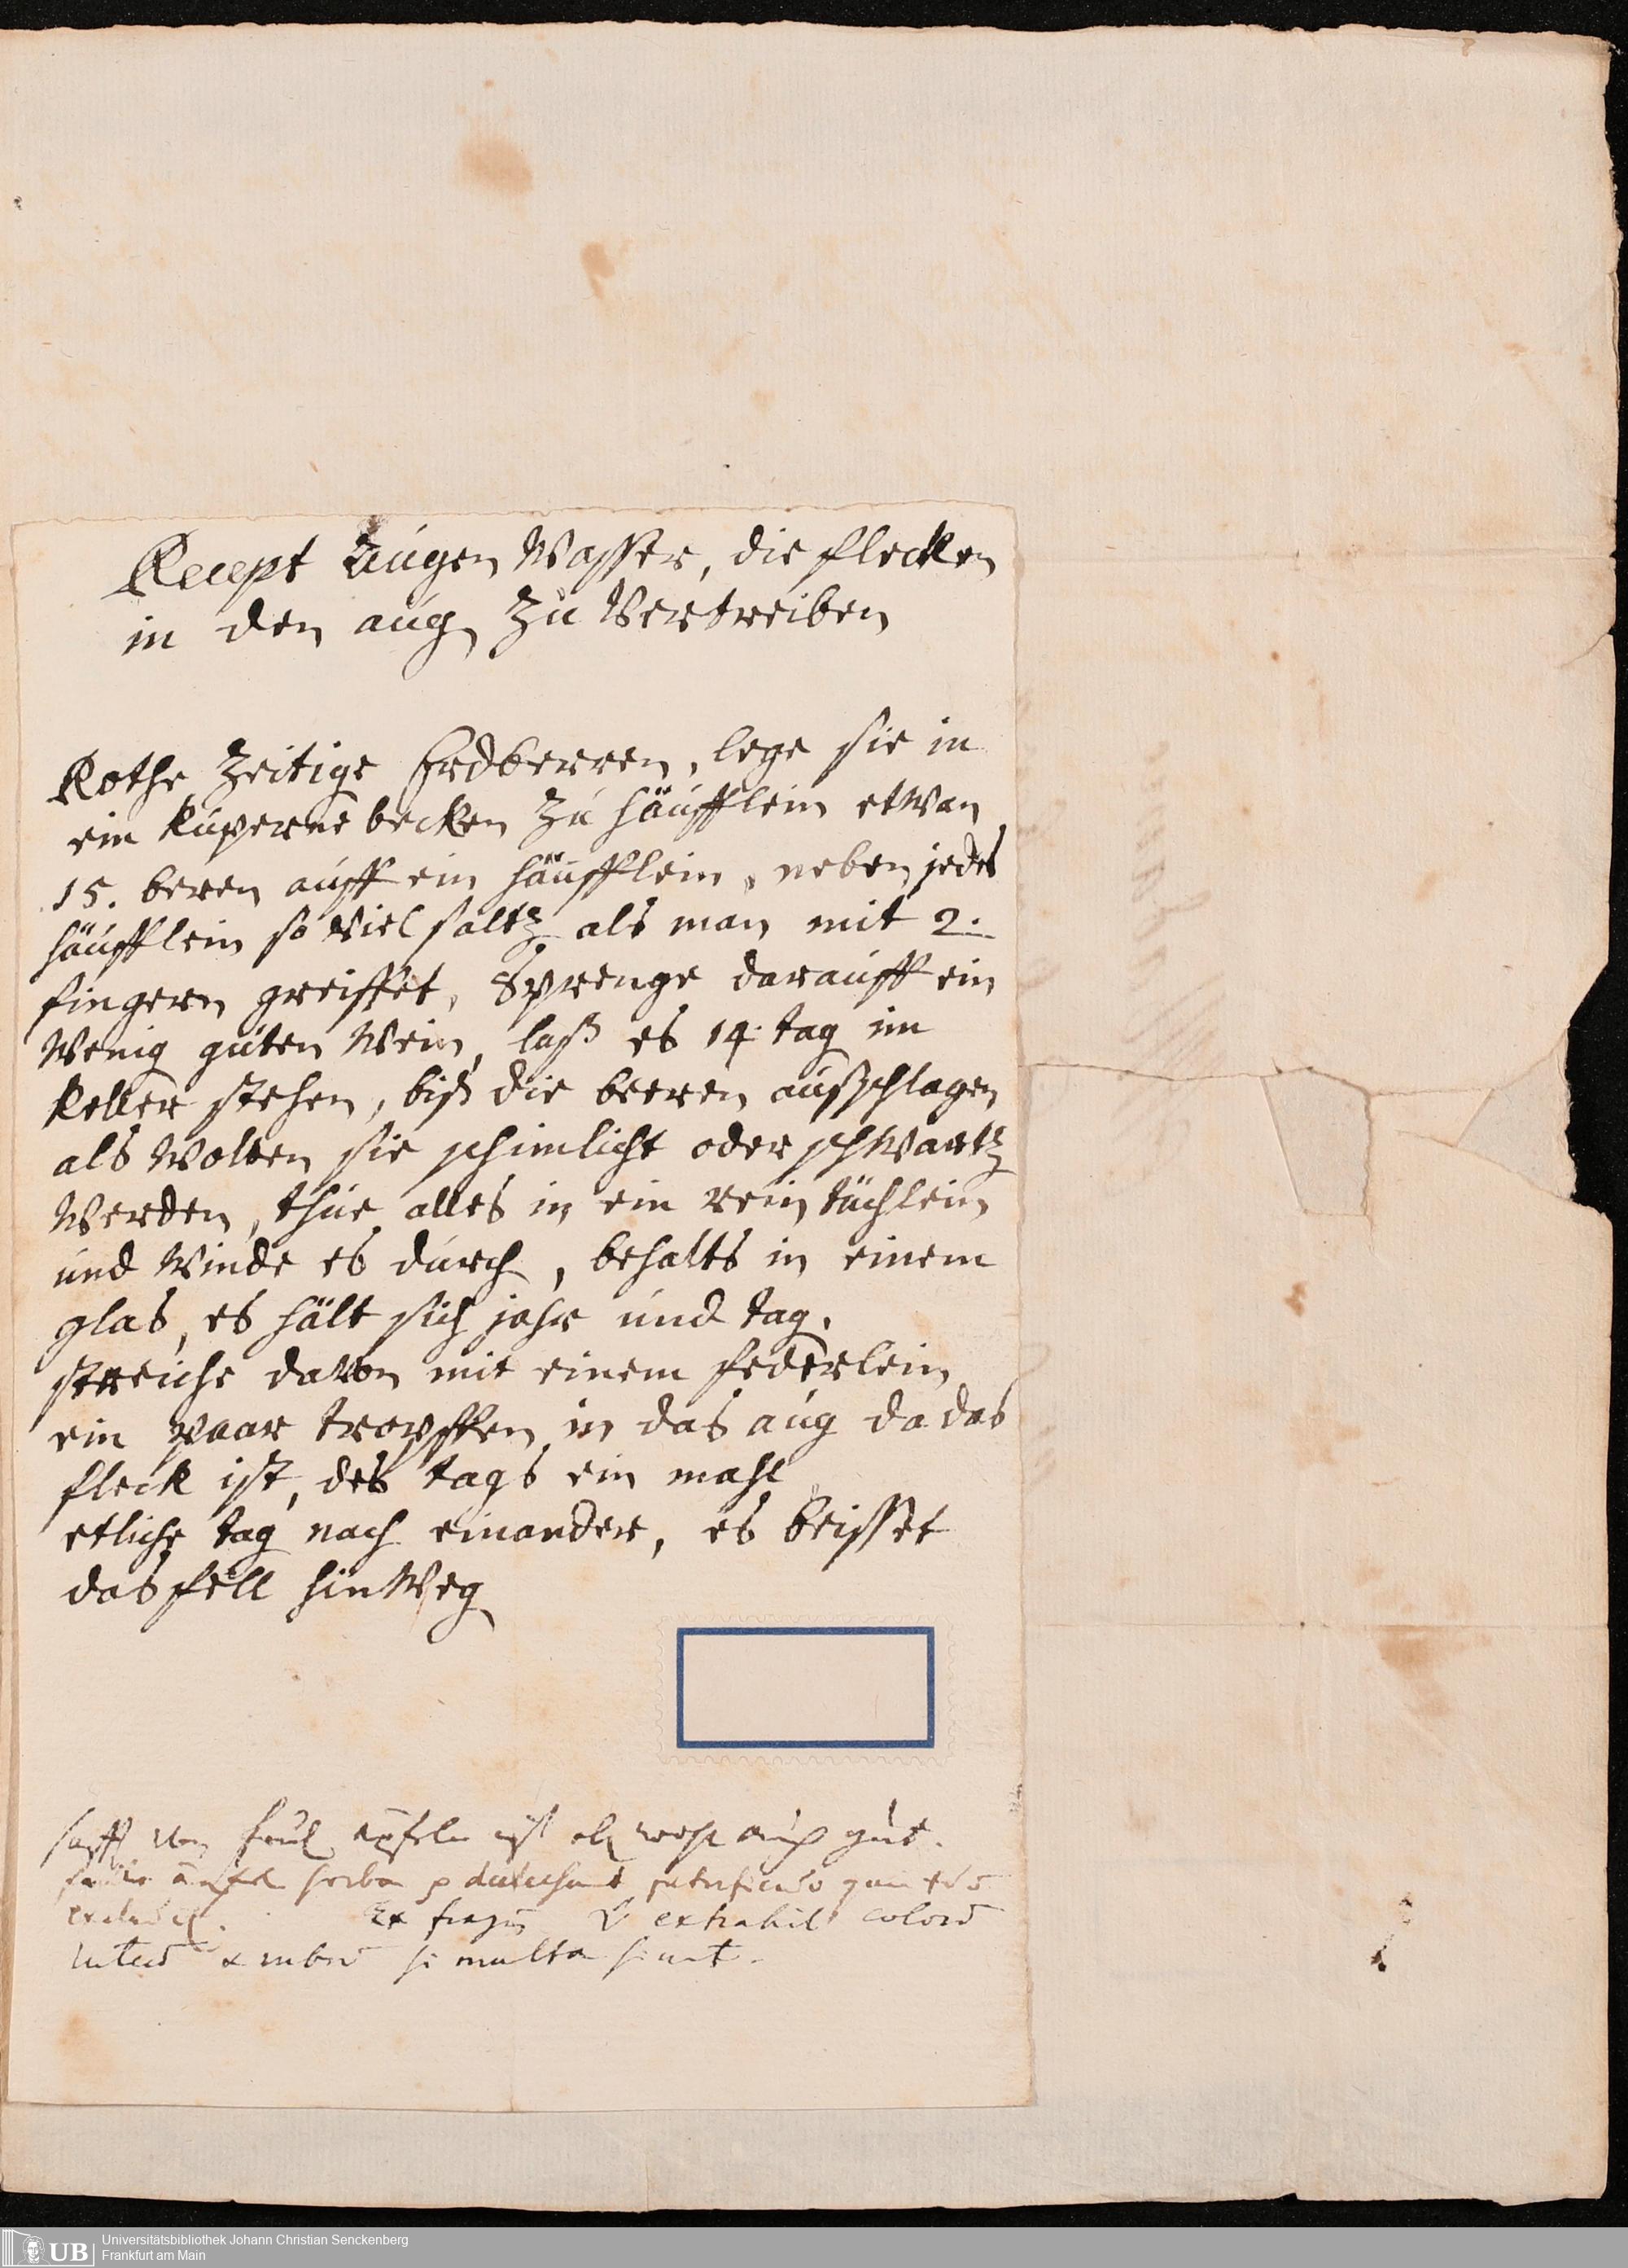 Recept Augen Wasser, die flecken
in den aug zu Vertreiben
Rothe Zeitige Erdberren, lege sie in
ein kuperne becken Zu häufflein etwan
15. beren auff ein häufflein, neben jedes
häufflein so Viel saltz als man mit 2.
fingern greiffet, Sprenge darauff ein
Wenig guten Wein, laß es 14. tag im
Keller stehen, biß die beeren außschlagen
als Wolten sie schimlicht oder schWartz
Werden, thue alles in ein rein tüchlein
und Winde es durch, behalts in einem
glas, es hält sich jahr und tag.
streiche davon mit einem federlein
ein paar tropffen in das aug da das
fleck ist, des tags ein mahl
etliche tag nach einander, es beisset
das fell hinWeg
safft von faul äpfeln ist als wohl auch gut.
äpfel
Ex extrahit colorem
luteum & rubrum si multa sint.
UB Universitätsbibliothek Johann Christian Senckenberg
Frankfurt am Main